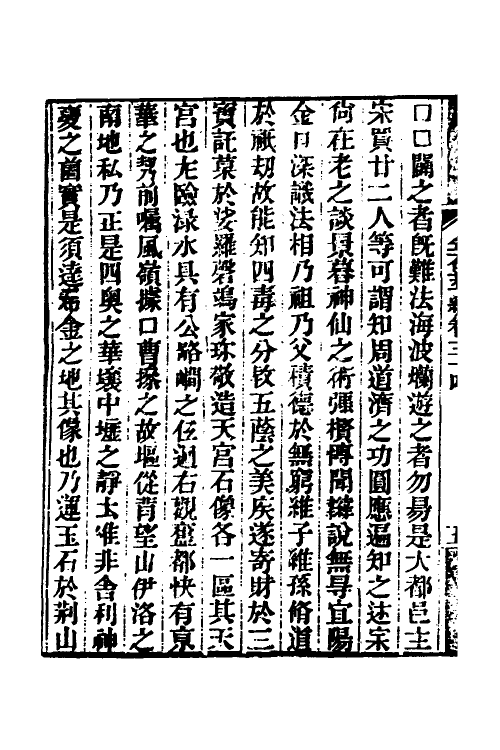 口口闢之者旣難法海波爛遊之者勿易是大都邑主
宋買廿二人等可謂知周道濟之功圓應遍知之迹宋
尚在老之談貝暮神仙之術强櫎傳聞辯說無尋宜陽
金口深識法相乃祖乃父積德於無窮維子維孫脩道
於祇刧故能知四毒之分段五蔭之美疾遂寄財於三
寳託菓於娑羅磬竭家珎敬造天宮石像各一區其天
宮也左臨渌水具有公路㵎之伍過右觀盤都快有京
華之剺前囑風嶺據口曹操之故塸從背望山伊洛之
南地私乃正是四奥之華壤中壥之靜土唯非舍利神
變之菌實是須達布金之地其像也乃運玉石於荆山